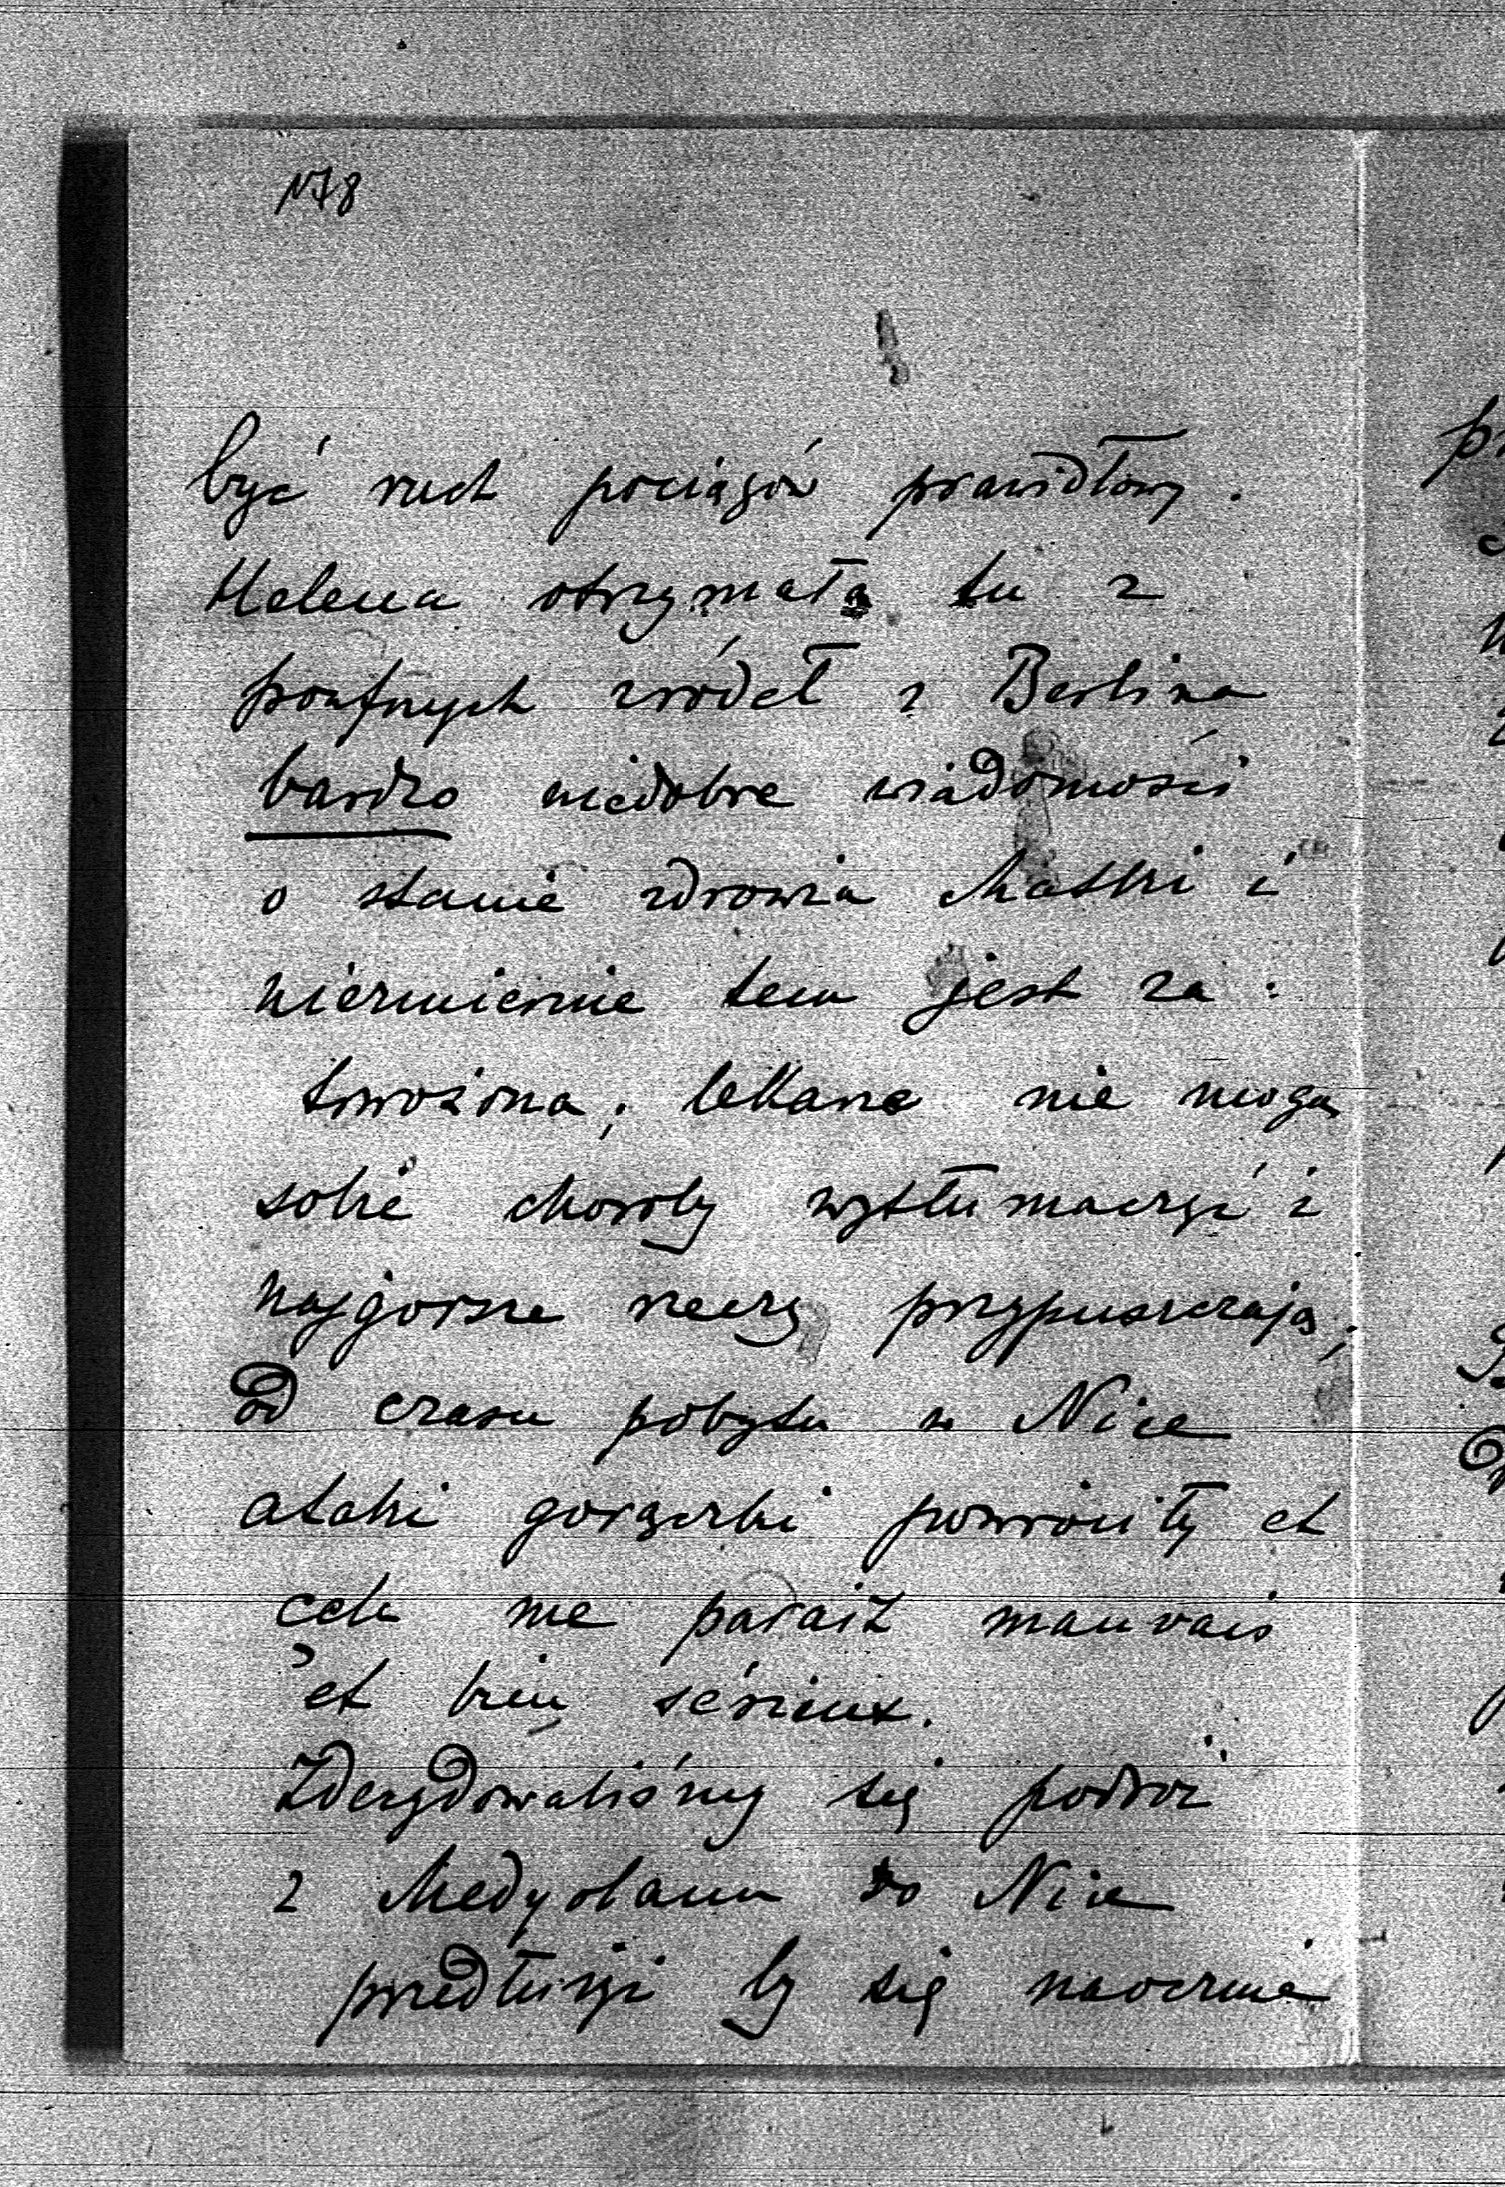 178
być ruch pociągów prawidłowy.
Helena otrzymała tu z
poufnych zródeł z Berlina
bardzo niedobre wiadomości
o stanie zdrowia Matki i
niezmiernie tem jest za-
trwożona; lekarze nie mogą
sobie choroby wytłumaczyć i
najgorsze rzeczy przypuszczają;
od czasu pobytu w Nice
ataki gorączki powróciły et
cela me parait mauvais
et bien sérieux.
Zdecydowaliśmy się podróż
z Medyolanu do Nice
przedłużyć by się naocznie